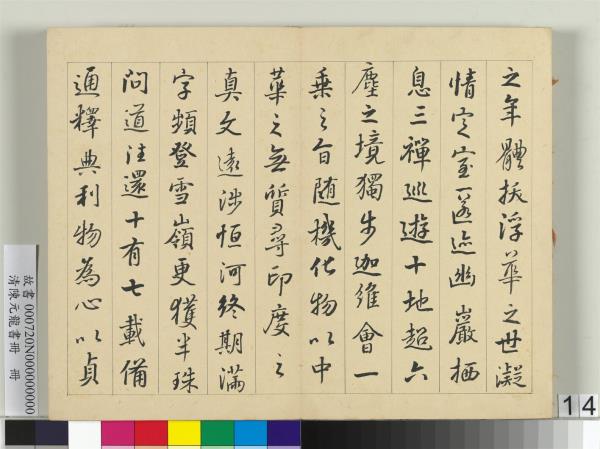 之年體拔浮華之世凝
情定室匿迹幽巖栖
息三禪巡遊十地超六
塵之境獨步迦維會一
乘之旨隨機化物以中
華之無質尋印度之
真文遠涉恒河終期滿
字頻登雪嶺更獲半珠
問道往還十有七載備
通釋典利物為心以貞
故書 000720N000000000
清陳元龍書冊 冊
14